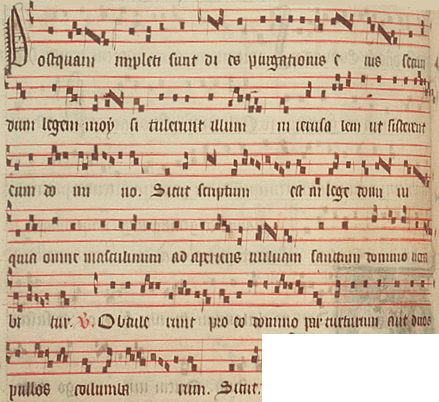 Postquam impleti sunt di es purgationis e ius secun
dum legem moy si tulerunt illum in ierusa lem ut sisterent
eum do mi no. Sicut scriptum est in lege domi ni
quia omne masculinum ad aperiens vulvam sanctum domino voca
bi tur. V. Obtule runt pro eo domino par turturum aut duos
pullos columba rum. Sicut.